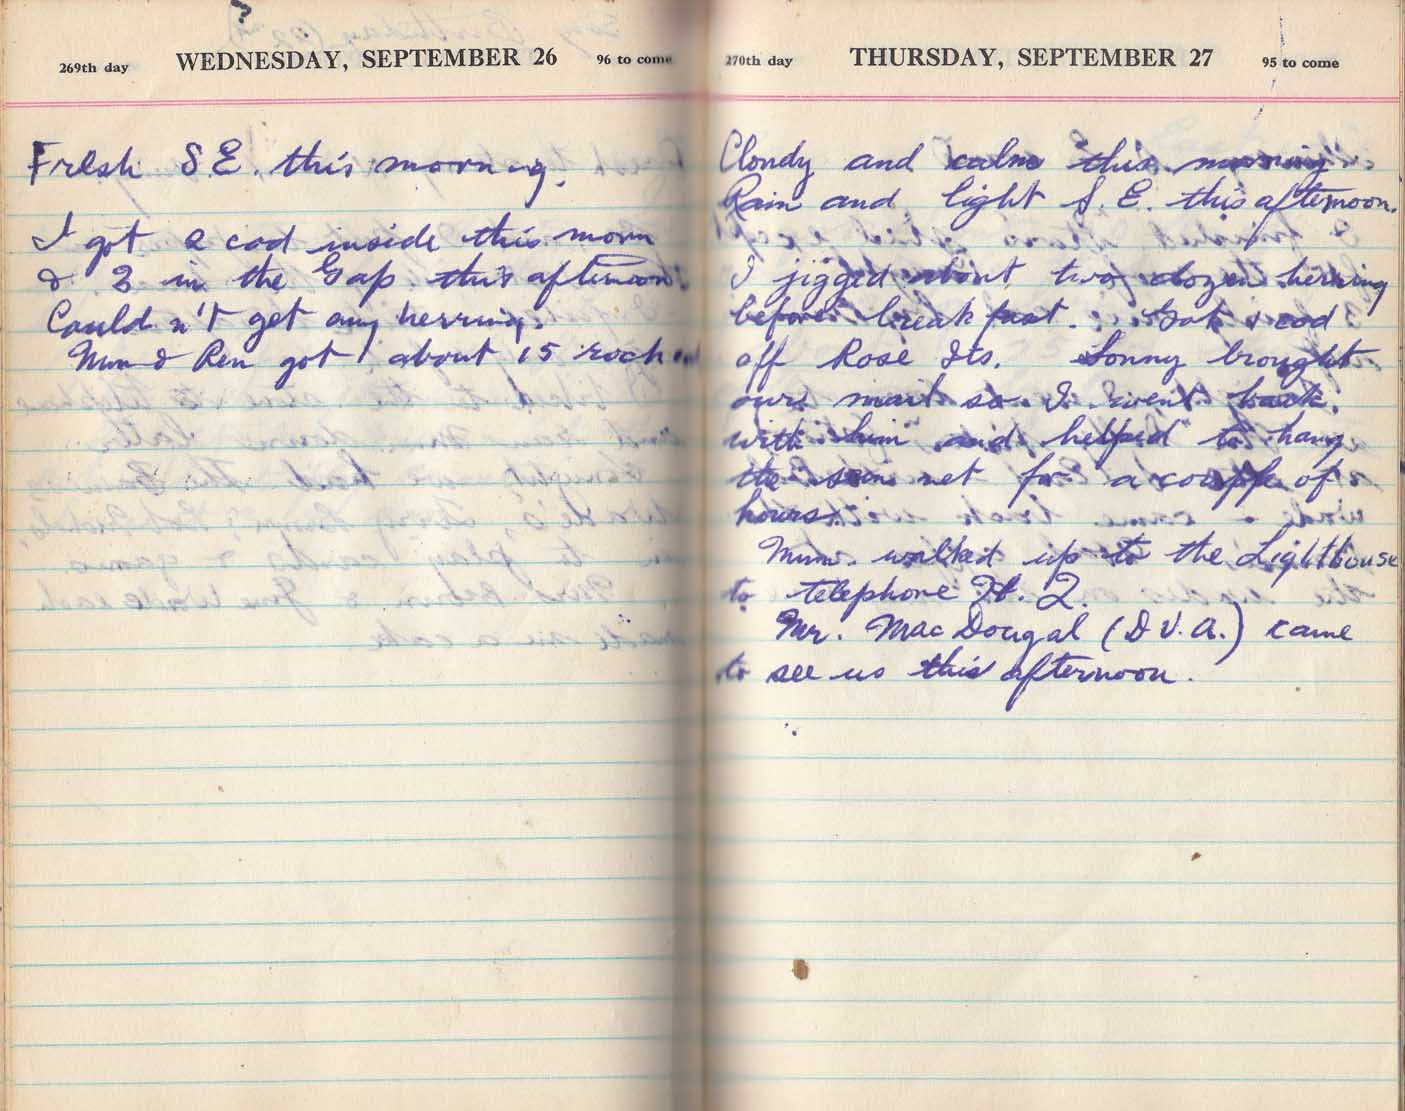 269th day WEDNESDAY, SEPTEMBER 26 96 to come
Fresh S.E. this morning.
I got 2 cod inside this morn
& 3 in the Gap this afternoon.
Could n't get any herring.
Mum & Ren got about 15 rock cod
270th day THURSDAY, SEPTEMBER 27 95 to come
Cloudy and calm this morning.
Rain and light S.E. this afternoon.
I jigged about two dozen herring
before breakfast. Got cod
off Rose Is. Sonny brought
our mail so I went back
with him and helped to hang
the net for a couple of
hours.
Mum walked up to the Lighthouse
to telephone
Mr. MacDougal (D.V.A.) came
to see us this afternoon.